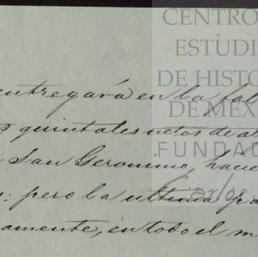 CENTRO
ESTUDI
DE HISTO
DE MÉX
FUNDAC
Carlos
entregará en la fab
quintales netos de al
San Geronimo, hacie
: pero la ultima pa
amente, en todo el m